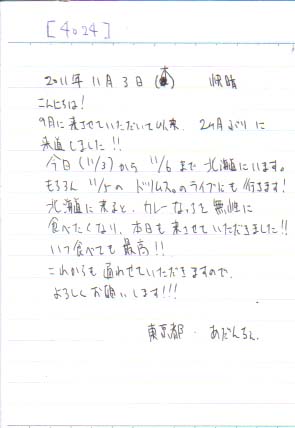 [4024]
2011年11月3日(木) 快晴
こんにちは!
9月に来させていただいて以来、2ヶ月ぶりに
来道しました!!
今日(11/3)から11/6まで北海道にいます。
もちろん11/5のドリムス。のライブにも行きます!
北海道に来ると、カレーなっちを無性に
食べたくなり、本日も来させていただきました!!
いつ食べても最高!!
これからも通わせていただきますので、
よろしくお願いします!!!
東京都・あだんちん